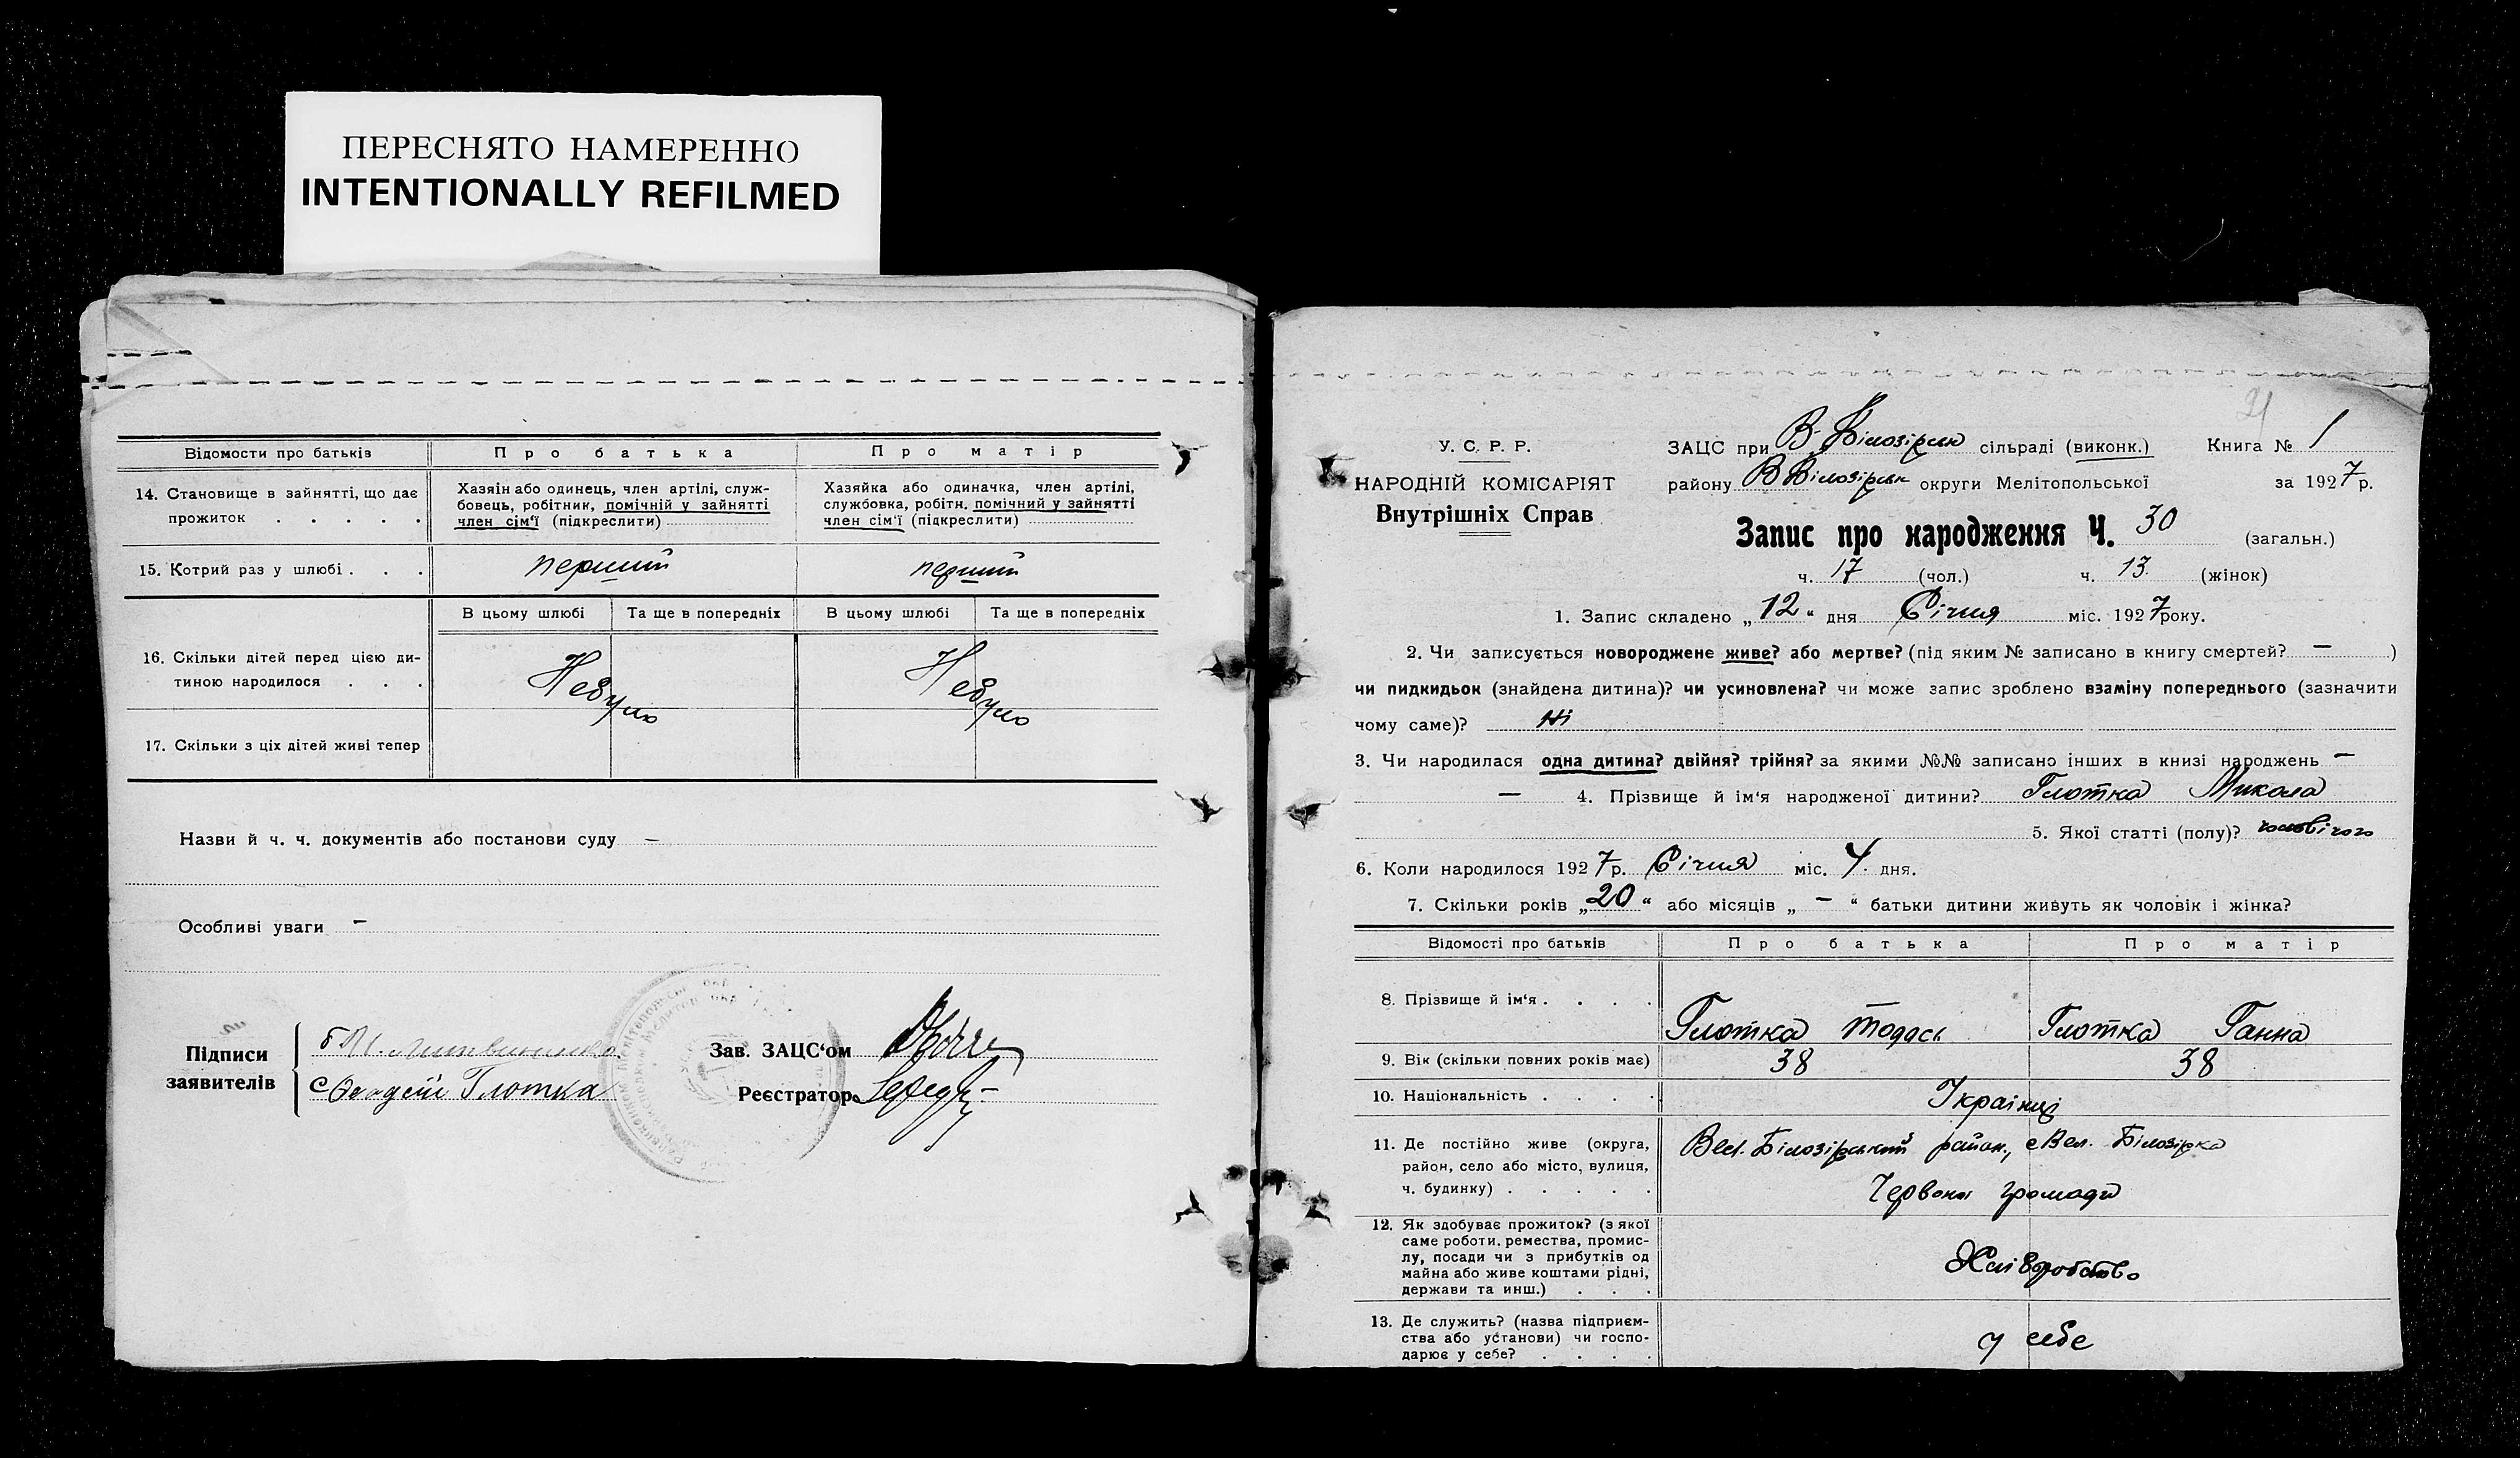 ПЕРЕСНЯТО НАМЕРЕННО
INTENTIONALLY REFILMED
Відомости про батьків
Про батька
Про матір
14. Становище в зайнятті, що дає
прожиток . . . . .
Хазяїн або одинець, член артілі, служ-
бовець, робітник, помічній у зайнятті
член сім'ї (підкреслити)
Хазяйка або одиначка, член артілі,
службовка, робітн. помічний у зайнятті
член сім'ї (підкреслити)
15. Котрий раз у шлюбі . . .
перший
перший
В цьому шлюбі
Та ще в попередніх
В цьому шлюбі
Та ще в попередніх
16. Скільки дітей перед цією ди-
тиною народилося . . .
Небуло
Небуло
17. Скільки з ціх дітей живі тепер
Назви й ч. ч. документів або постанови суду —
Особливі уваги —
Підписи
заявителів
Глотка
Зав. ЗАЦС'ом
Реєстратор
21
У. С. Р. Р.
НАРОДНІЙ КОМІСАРІЯТ
Внутрішніх Справ
ЗАЦС при В-Білозірськ сільраді (виконк.) Книга № 1
району В Білозірськ округи Мелітопольської за 1927 р.
Запис про народження Ч. 30 (загальн.)
ч. 17 (чол.) ч. 13 (жінок)
1. Запис складено „12" дня Січня міс. 1927 року.
2. Чи записується новороджене живе? або мертве? (під яким № записано в книгу смертей? — )
чи пидкидьок (знайдена дитина)? чи усиновлена? чи може запис зроблено взаміну попереднього (зазначити
чому саме)? Ні
3. Чи народилася одна дитина? двійня? трійня? за якими №№ записано інших в книзі народжень —
— 4. Прізвище й ім'я народженої дитини? Глотка Микола
5. Якої статті (полу)? чоловічого
6. Коли народилося 1927 р. Січня міс. 4 дня.
7. Скільки років „20" або місяців „—" батьки дитини живуть як чоловік і жінка?
Відомості про батьків
Про батька
Про матір
8. Прізвище й ім'я . . . .
Глотка Тодось
Глотка Ганна
9. Вік (скільки повних років має)
38
38
10. Національність . . . .
Українці
11. Де постійно живе (округа,
район, село або місто, вулиця,
ч. будинку) . . . . .
Вел. Білозірський район, с Вел. Білозірка
Червоної громади
12. Як здобуває прожиток? (з якої
саме роботи, ремества, промис-
лу, посади чи з прибутків од
майна або живе коштами рідні,
держави та инш.) . . .
Хліборобство
13. Де служить? (назва підприєм-
ства або установи) чи госпо-
дарює у себе? . . . .
у себе